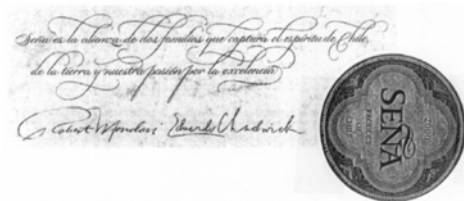 Seña es la alianza de dos familias que captura el espíritu de Chile,
de la tierra y nuestra pasión por la excelencia
Robert Mondavi Eduardo Chadwick
SEÑA
PRODUCT
OF CHILE